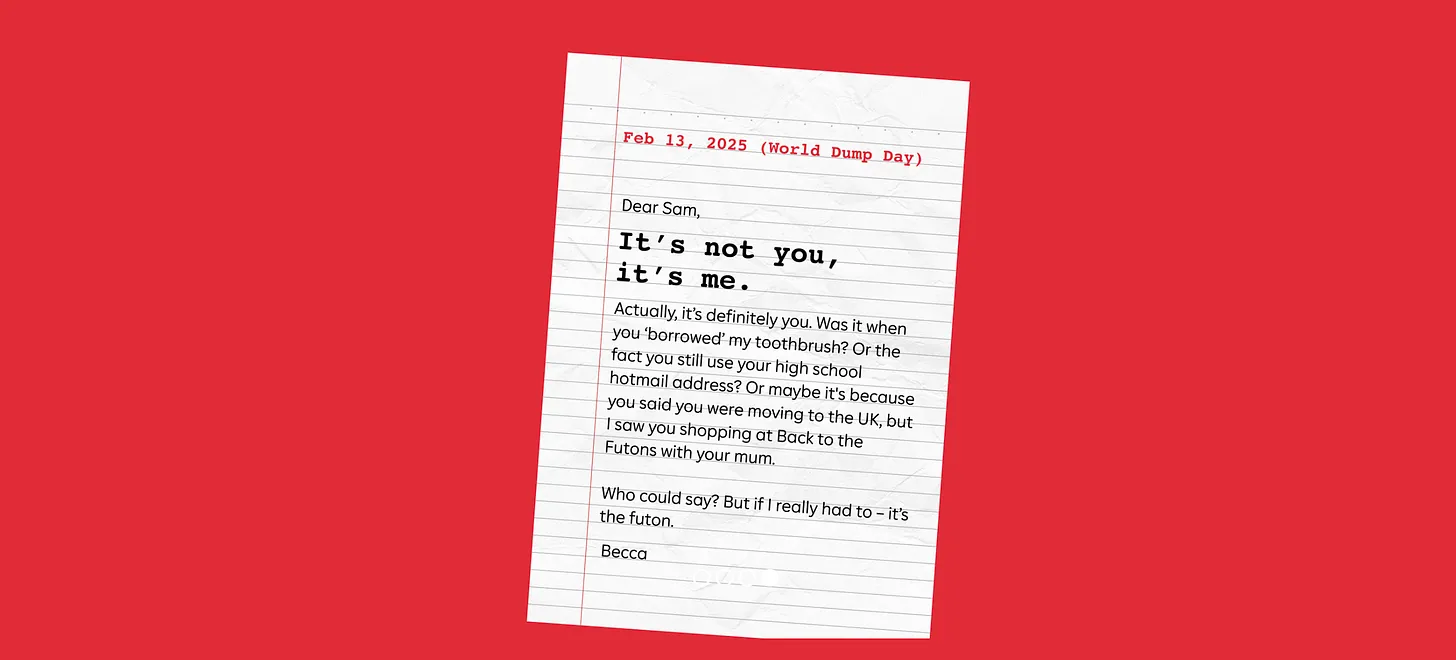 Feb 13, 2025 (World Dump Day)
Dear Sam,
It’s not you,
it’s me.
Actually, it’s definitely you. Was it when
you ‘borrowed’ my toothbrush? Or the
fact you still use your high school
hotmail address? Or maybe it's because
you said you were moving to the UK, but
I saw you shopping at Back to the
Futons with your mum.
Who could say? But if I really had to – it’s
the futon.
Becca